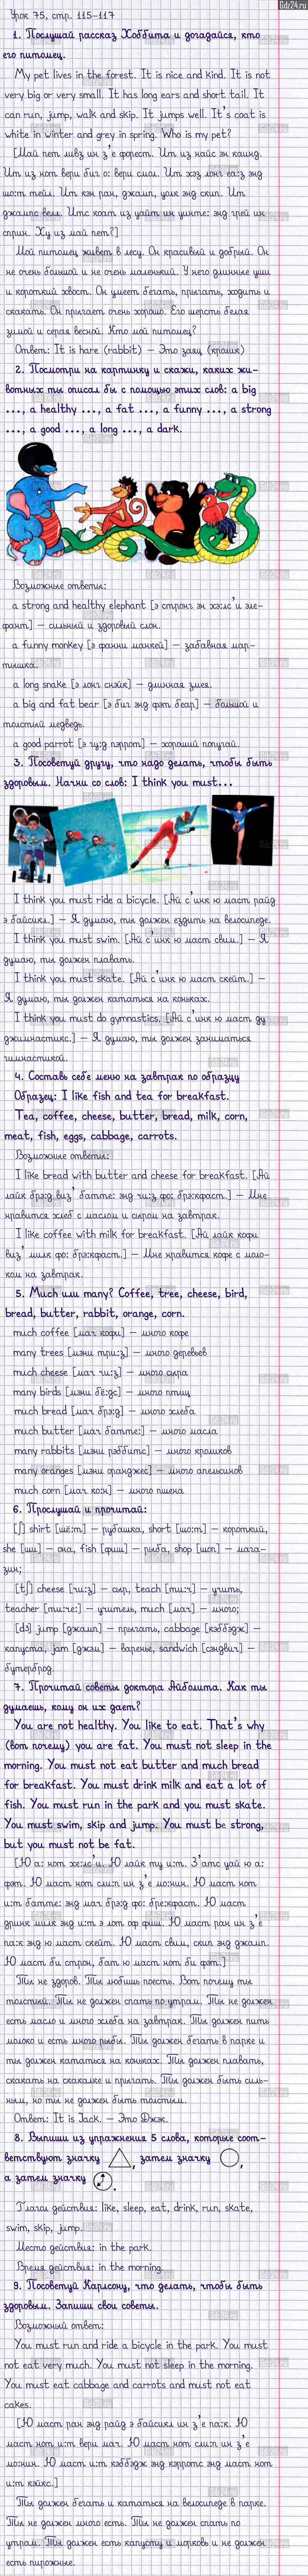 Gdz24.ru
Урок 75, стр. 115-117
1. Послушай рассказ Хоббита и догадайся, кто
его питомец.
My pet lives in the forest. It is nice and kind. It is not
very big or very small. It has long ears and short tail. It
can run, jump, walk and skip. It jumps well. It's coat is
white in winter and grey in spring. Who is my pet?
Мой питомец живет в лесу. Он красивый и добрый. Он
не очень большой и не очень маленький. У него длинные уши
и короткий хвост. Он умеет бегать, прыгать, ходить и
скакать. Он прыгает очень хорошо. Его шерсть белая
зимой и серая весной. Кто мой питомец?
Ответ: It is hare (rabbit) – Это заяц (кролик)
2. Посмотри на картинку и скажи, каких жи-
вотных ты описал бы с помощью этих слов: a big
..., a healthy ..., a fat ..., a funny ..., a strong
..., a good ..., a long ..., a dark.
Возможные ответы:
a strong and healthy elephant
– сильный и здоровый слон.
a funny monkey [э фанни манкей] – забавная мар-
тышка.
a long snake [э лонг снэйк] – длинная змея.
a big and fat bear [э биг энд фэт беар] – большой и
толстый медведь.
a good parrot [э гу:д пэррот] – хороший попугай.
3. Посоветуй другу, что надо делать, чтобы быть
здоровым. Начни со слов: I think you must...
I think you must ride a bicycle. [Ай с'инк ю маст райд
э байсикл.] – Я думаю, ты должен ездить на велосипеде.
I think you must swim. [Ай с'инк ю маст свим.] – Я
думаю, ты должен плавать.
I think you must skate. [Ай с'инк ю маст скейт.] –
Я думаю, ты должен кататься на коньках.
I think you must do gymnastics. [Ай с'инк ю маст ду
джимнастикс.] – Я думаю, ты должен заниматься
гимнастикой.
4. Составь себе меню на завтрак по образцу
Образец: I like fish and tea for breakfast.
Tea, coffee, cheese, butter, bread, milk, corn,
meat, fish, eggs, cabbage, carrots.
Возможные ответы:
I like bread with butter and cheese for breakfast. [Ай
лайк брэ:д виз' батте: энд чи:з фо: брэ:кфаст.] – Мне
нравится хлеб с маслом и сыром на завтрак.
I like coffee with milk for breakfast. [Ай лайк кофи
виз' милк фо: брэ:кфаст.] – Мне нравится кофе с моло-
ком на завтрак.
5. Much или many? Coffee, tree, cheese, bird,
bread, butter, rabbit, orange, corn.
much coffee [мач кофи] – много кофе
many trees [мэни три:з] – много деревьев
much cheese [мач чи:з] – много сыра
many birds [мэни бё:дс] – много птиц
much bread [мач брэ:д] – много хлеба
much butter [мач батте:] – много масла
many rabbits [мэни рэббитс] – много кроликов
many oranges [мэни оранджес] – много апельсинов
much corn [мач ко:н] – много пшена
6. Прослушай и прочитай:
[ʃ] shirt [шё:т] – рубашка, short [шо:т] – короткий,
she [ши] – она, fish [фиш] – рыба, shop [шоп] – мага-
зин;
[tʃ] cheese [чи:з] – сыр, teach [ти:ч] – учить,
teacher [ти:че:] – учитель, much [мач] – много;
[dʒ] jump [джамп] – прыгать, cabbage [кэббэдж] –
капуста, jam [джэм] – варенье, sandwich [сэндвич] –
бутерброд.
7. Прочитай советы доктора Айболита. Как ты
думаешь, кому он их дает?
You are not healthy. You like to eat. That's why
(вот почему) you are fat. You must not sleep in the
morning. You must not eat butter and much bread
for breakfast. You must drink milk and eat a lot of
fish. You must run in the park and you must skate.
You must swim, skip and jump. You must be strong,
but you must not be fat.
Ты не здоров. Ты любишь поесть. Вот почему ты
толстый. Ты не должен спать по утрам. Ты не должен
есть масло и много хлеба на завтрак. Ты должен пить
молоко и есть много рыбы. Ты должен бегать в парке и
ты должен кататься на коньках. Ты должен плавать,
скакать на скакалке и прыгать. Ты должен быть силь-
ным, но ты не должен быть толстым.
Ответ: It is Jack. – Это Джэк.
8. Выпиши из упражнения 5 слова, которые соот-
ветствуют значку , затем значку ,
а затем значку .
действия: like, sleep, eat, drink, run, skate,
swim, skip, jump.
Место действия: in the park.
Время действия: in the morning.
9. Посоветуй Карлсону, что делать, чтобы быть
здоровым. Запиши свои советы.
Возможный ответ:
You must run and ride a bicycle in the park. You must
not eat very much. You must not sleep in the morning.
You must eat cabbage and carrots and must not eat
cakes.
[Ю маст ран энд райд э байсикл ин з'е па:к. Ю
маст нот и:т вери мач. Ю маст нот сли:п ин з'е
мо:нин. Ю маст и:т кэббэдж энд кэрротс энд маст нот
и:т кэйкс.]
Ты должен бегать и кататься на велосипеде в парке.
Ты не должен много есть. Ты не должен спать по
утрам. Ты должен есть капусту и морковь и не должен
есть пирожные.